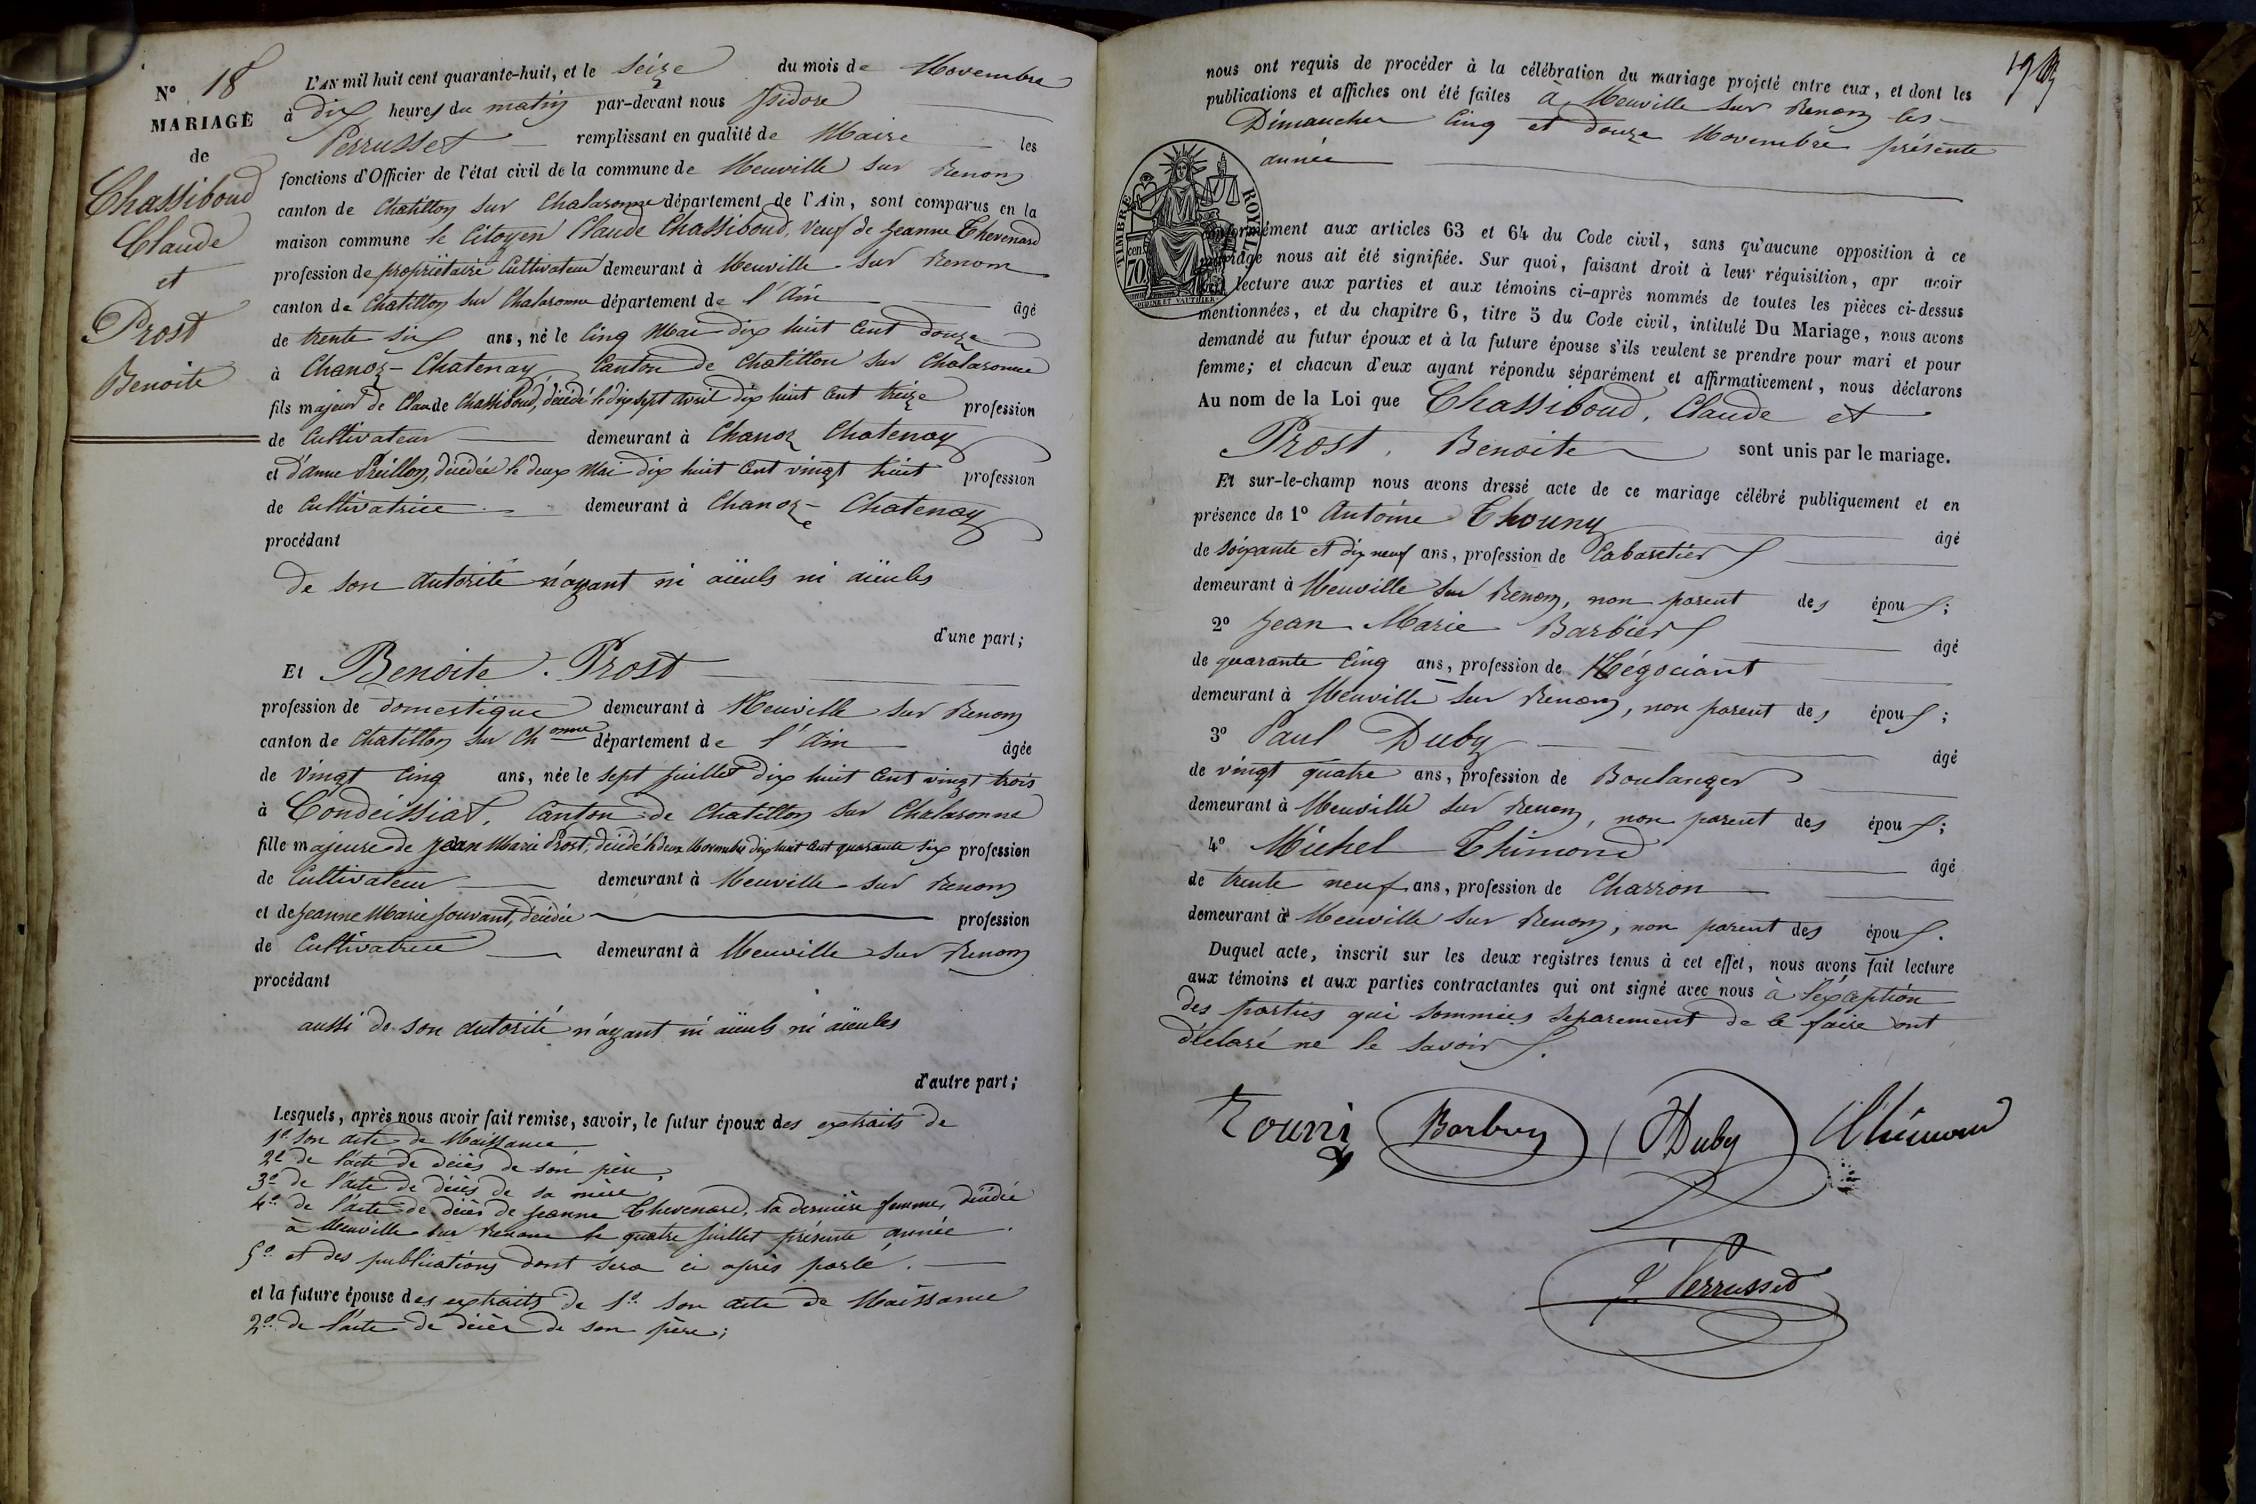 N° 18
MARIAGE
de
Chassiboud
Claude
et
Prost
Benoite
L'AN mil huit cent quarante-huit, et le seize du mois de Novembre
à dix heures du matin par-devant nous Isidore
Perrusset remplissant en qualité de Maire les
fonctions d'Officier de l'état civil de la commune de Neuville sur Renom
canton de Chatillon sur Chalaronne département de l'Ain, sont comparus en la
maison commune le Citoyen Claude Chassiboud, veuf de Jeanne Thévenard
profession de propriétaire Cultivateur demeurant à Neuville sur Renom
canton de Chatillon sur Chalaronne département de l'Ain âgé
de trente six ans, né le cinq Mai dix huit cent douze
à Chanoz-Chatenay, Canton de Chatillon sur Chalaronne
fils majeur de Claude Chassiboud, décédé le dix sept avril dix huit cent treize profession
de Cultivateur demeurant à Chanoz Chatenay
et d'anne Preillon, décédée le deux Mai dix huit cent vingt huit profession
de Cultivatrice demeurant à Chanoz-Chatenay
procédant
de son autorité n'ayant ni aïeuls ni aïeules
d'une part;
Et Benoite Prost
profession de domestique demeurant à Neuville sur Renom
canton de Chatillon sur Chonne département de l'Ain âgée
de vingt cinq ans, née le sept juillet dix huit cent vingt trois
à Condeissiat, Canton de Chatillon sur Chalaronne
fille majeure de Jean Marie Prost, décédé le deux Novembre dix huit cent quarante six profession
de Cultivateur demeurant à Neuville sur Renom
et de Jeanne Marie Jouvant, décédée profession
de Cultivatrice demeurant à Neuville sur Renom
procédant
aussi de son autorité n'ayant ni aïeuls ni aïeules
d'autre part;
Lesquels, après nous avoir fait remise, savoir, le futur époux des extraits de
1° son acte de Naissance
2° de l'acte de décès de son père,
3° de l'acte de décès de sa mère,
4° de l'acte de décès de Jeanne Thevenard, sa dernière femme, décédée
à Neuville sur Renom le quatre juillet présente année.
5° et des publications dont sera ci après parlé.
et la future épouse des extraits de 1° son acte de Naissance
2° de l'acte de décès de son père;
nous ont requis de procéder à la célébration du mariage projeté entre eux, et dont les
publications et affiches ont été faites à Neuville sur Renom les
Dimanches cinq et douze Novembre présente
année
TIMBRE ROYAL
cen
70
conformément aux articles 63 et 64 du Code civil, sans qu'aucune opposition à ce
mariage nous ait été signifiée. Sur quoi, faisant droit à leur réquisition, apr avoir
lecture aux parties et aux témoins ci-après nommés de toutes les pièces ci-dessus
mentionnées, et du chapitre 6, titre 5 du Code civil, intitulé Du Mariage, nous avons
demandé au futur époux et à la future épouse s'ils veulent se prendre pour mari et pour
femme; et chacun d'eux ayant répondu séparément et affirmativement, nous déclarons
Au nom de la Loi que Chassiboud, Claude et
Prost, Benoite sont unis par le mariage.
Et sur-le-champ nous avons dressé acte de ce mariage célébré publiquement et en
présence de 1° Antoine Thouny âgé
de soixante et dix neuf ans, profession de Cabaretier
demeurant à Neuville sur Renom, non parent des époux;
2° Jean Marie Barbier âgé
de quarante cinq ans, profession de Négociant
demeurant à Neuville sur Renom, non parent des époux;
3° Paul Duby âgé
de vingt quatre ans, profession de Boulanger
demeurant à Neuville sur Renom, non parent des époux;
4° Michel Thimond âgé
de trente neuf ans, profession de Charron
demeurant à Neuville sur Renom, non parent des époux.
Duquel acte, inscrit sur les deux registres tenus à cet effet, nous avons fait lecture
aux témoins et aux parties contractantes qui ont signé avec nous à l'éxception
des parties qui sommées separement de le faire ont
déclaré ne le savoir.
Touni Barbery Duby Thimon
J. Perrusset